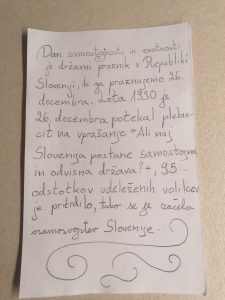 Dan samostojnosti in enotnosti
je državni praznik v Republiki
Sloveniji, ki ga praznujemo 26.
decembra. Leta 1990 je
26. decembra potekal plebis-
cit na vprašanje "Ali naj
Slovenija postane samostojna
in odvisna država?", 95
odstotkov udeleženih volilcev
je pritrdilo, tako se je začela
osamosvojitev Slovenije.